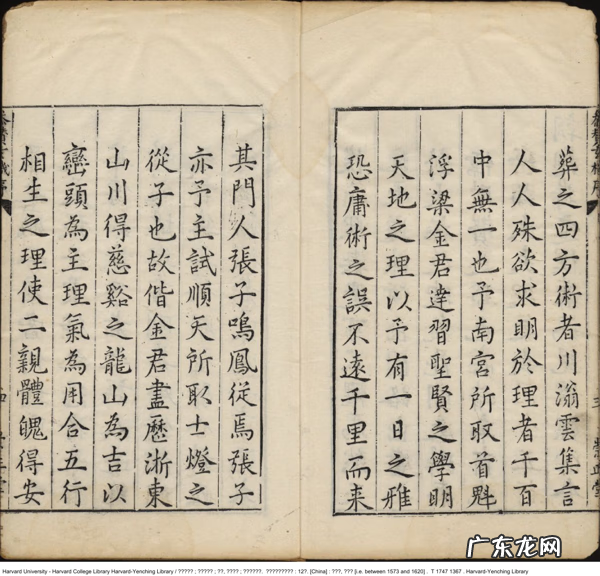 葬之四方術者川滃雲集言
人人殊欲求明於理者千百
中無一也予南宮所取首魁
浮梁金君達習聖賢之學明
天地之理以予有一日之雅
恐庸術之誤不遠千里而来
其門人張子鳴鳳從焉張子
亦予主試順天所取士燈之
從子也故偕金君盡歷淅東
山川得慈谿之龍山為吉以
巒頭為主理氣為用合五行
相生之理使二親體魄得安
广东龙网
Harvard University - Harvard College Library Harvard-Yenching Library / ????? ; ????? ; ??, ???? ; ??????. ????????? : 12?. [China] : ???, ??? [i.e. between 1573 and 1620] . T 1747 1367 . Harvard-Yenching Library